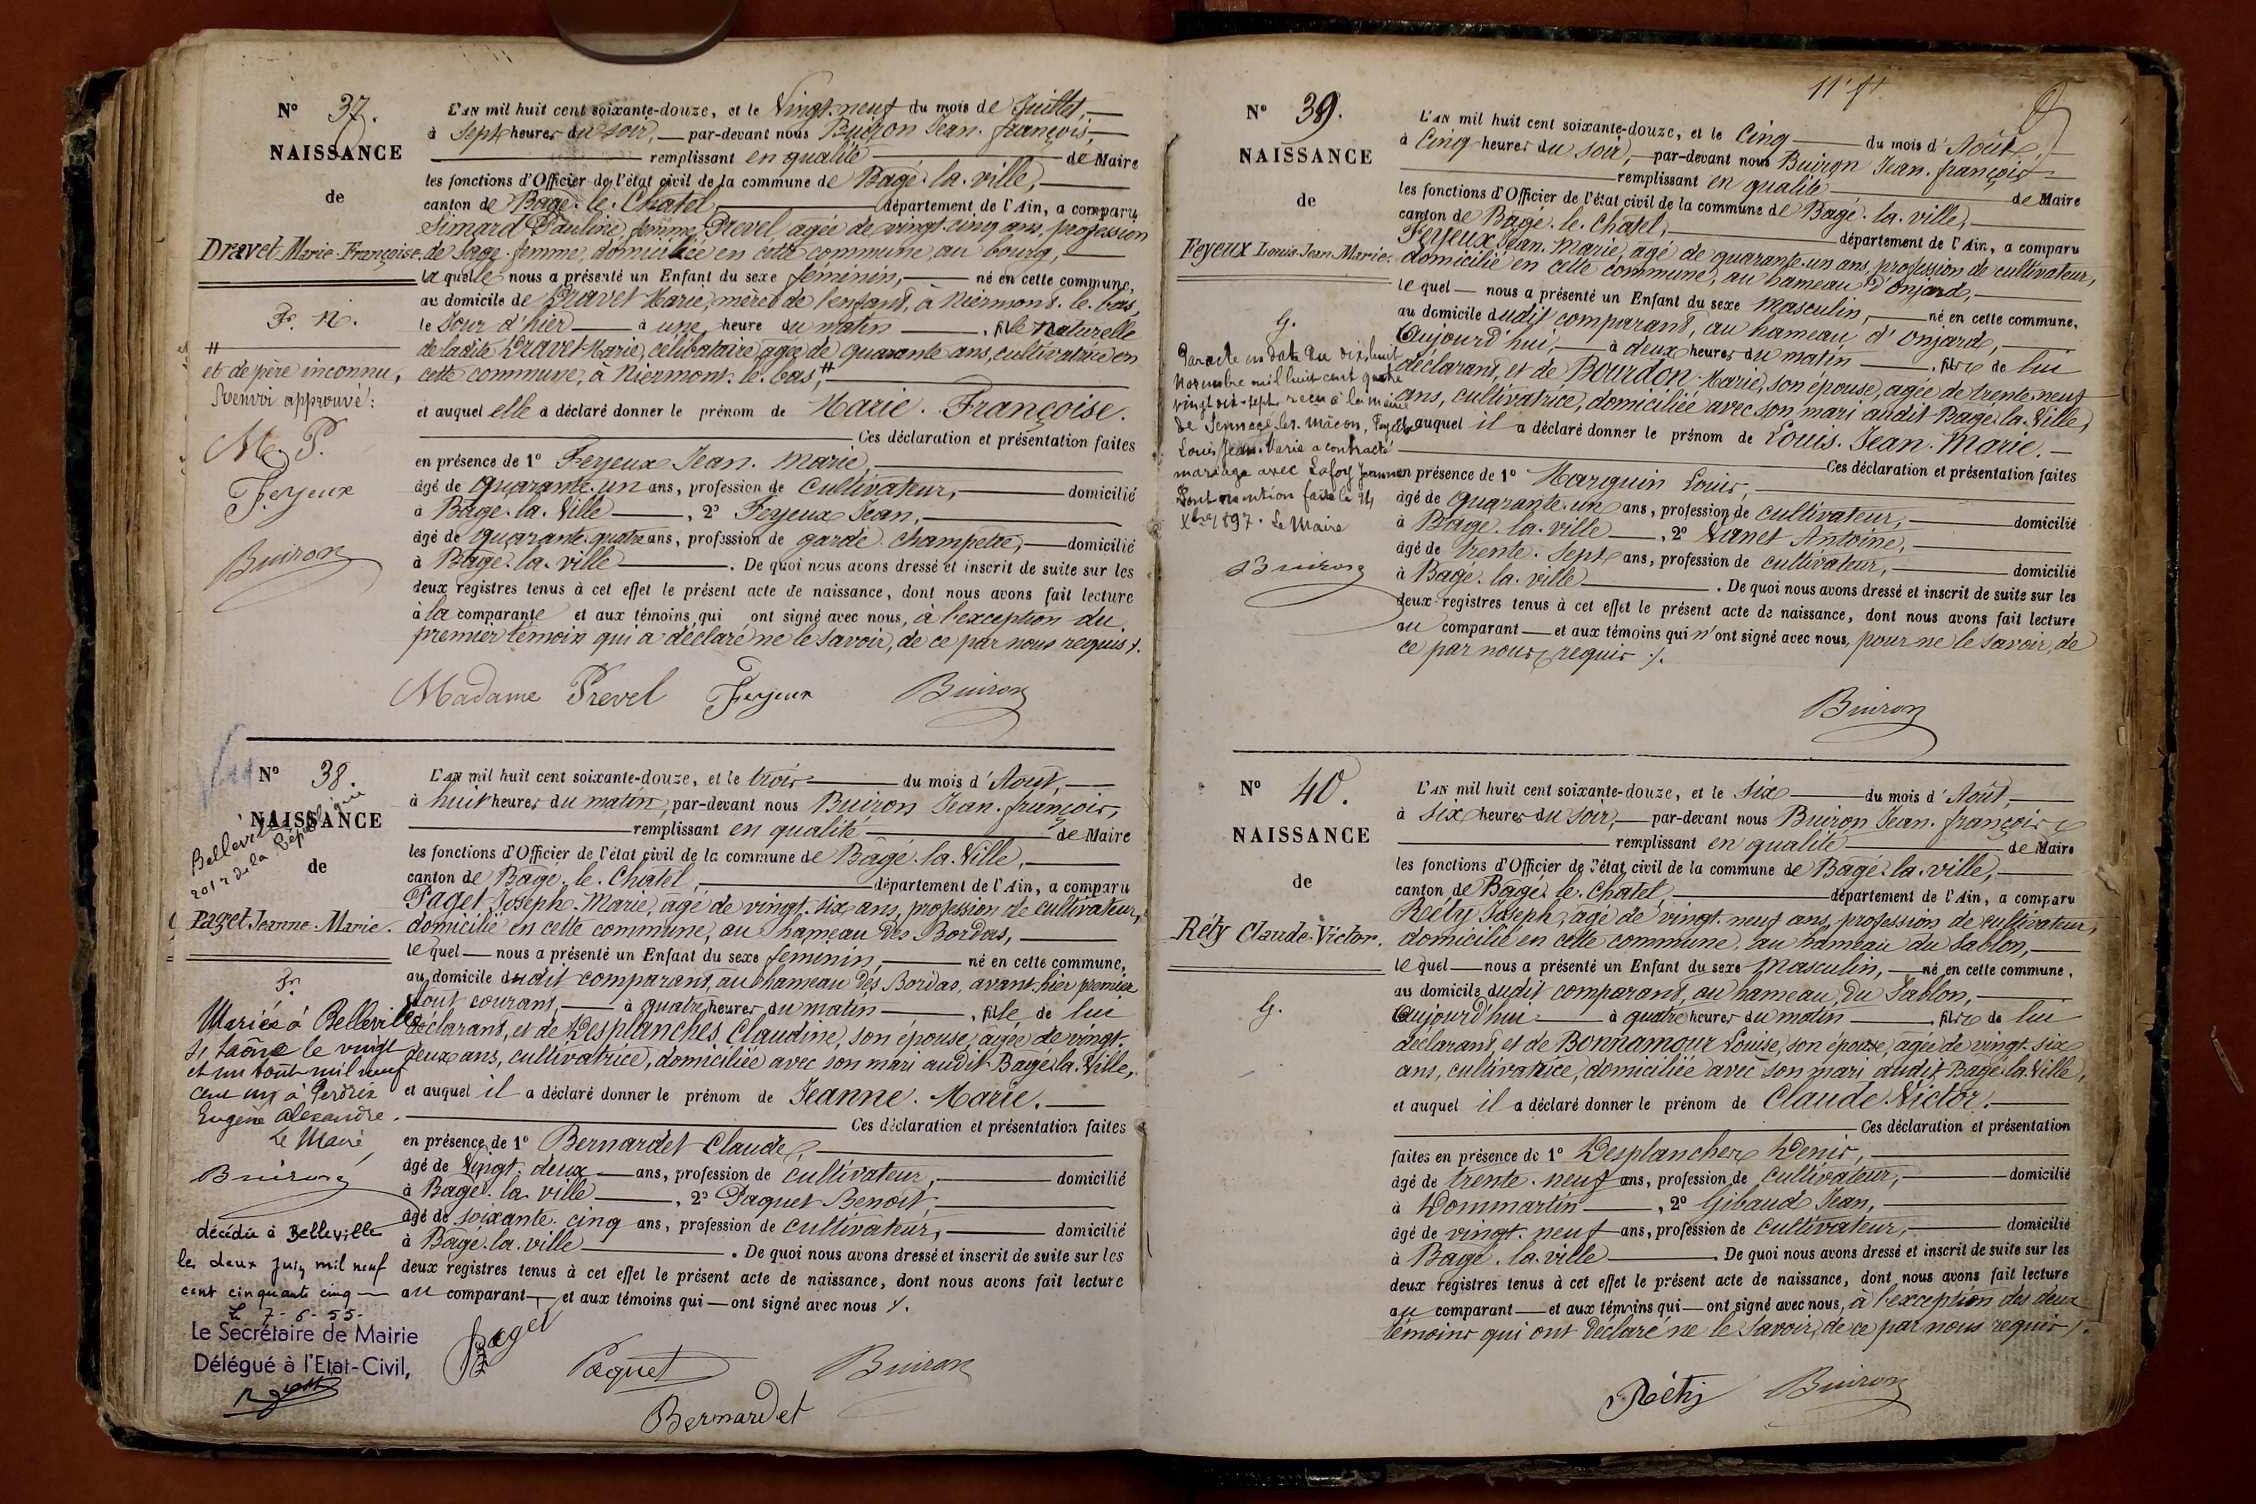 N° 37.
NAISSANCE
de
Dravet Marie-Françoise.
Fe. N.
#
et de père inconnu,
Renvoi approuvé :
M. P.
Feyeux
Buiron
L'AN mil huit cent soixante-douze, et le Vingt-neuf du mois de Juillet,
à Sept heures du soir, par-devant nous Buiron Jean-françois,
remplissant en qualité de Maire
les fonctions d'Officier de l'état civil de la commune de Bagé-la-ville,
canton de Bagé-le-Chatel, département de l'Ain, a comparu
Simard Pauline, femme Prevel agée de vingt-cinq ans, profession
de Sage-femme, domiciliée en cette commune, au bourg,
la quelle nous a présenté un Enfant du sexe féminin, né en cette commune,
au domicile de Dravet Marie, mère de l'enfant, à Niermont-le-bas,
le Jour d'hier à une heure du matin, fille naturelle
de ladite Dravet Marie, célibataire, agée de quarante ans, cultivatrice en
cette commune, à Niermont-le-bas, #
et auquel elle a déclaré donner le prénom de Marie-Françoise.
Ces déclaration et présentation faites
en présence de 1° Feyeux Jean-Marie,
âgé de quarante-un ans, profession de cultivateur, domicilié
à Bagé-la-Ville, 2° Feyeux Jean,
âgé de quarante-quatre ans, profession de garde-champetre, domicilié
à Bagé-la-ville. De quoi nous avons dressé et inscrit de suite sur les
deux registres tenus à cet effet le présent acte de naissance, dont nous avons fait lecture
à la comparante et aux témoins qui ont signé avec nous, à l'exception du
premier témoin qui a déclaré ne le savoir, de ce par nous requis ./.
Madame Prevel Feyeux Buiron
Vu
N° 38.
NAISSANCE
de
Belleville
2012 de la République
Paget Jeanne-Marie.
Fe.
Mariée à Belleville
s/ Saône le vingt
et un août mil neuf
cent un à Perdrix
Eugène Alexandre.
Le Maire,
Buiron
décédée à Belleville
le deux juin mil neuf
cent cinquante cinq
Le 7-6-55-
Le Secrétaire de Mairie
Délégué à l'Etat-Civil,
L'AN mil huit cent soixante-douze, et le trois du mois d'Août,
à huit heures du matin, par-devant nous Buiron Jean-françois,
remplissant en qualité de Maire
les fonctions d'Officier de l'état civil de la commune de Bagé-la-Ville,
canton de Bagé-le-Chatel, département de l'Ain, a comparu
Paget Joseph-Marie, agé de vingt-six ans, profession de cultivateur,
domicilié en cette commune, au hameau des Bordas,
le quel nous a présenté un Enfant du sexe féminin, né en cette commune,
au domicile dudit comparant, au hameau des Bordas, avant-hier premier
Aout courant, à quatre heures du matin, fille de lui
déclarant, et de Desplanches Claudine, son épouse, agée de vingt-
deux ans, cultivatrice, domiciliée avec son mari audit Bagé-la-Ville,
et auquel il a déclaré donner le prénom de Jeanne-Marie.
Ces déclaration et présentation faites
en présence de 1° Bernardet Claude,
âgé de Vingt-deux ans, profession de cultivateur, domicilié
à Bagé-la-ville, 2° Paquet Benoit,
âgé de soixante-cinq ans, profession de cultivateur, domicilié
à Bagé-la-ville. De quoi nous avons dressé et inscrit de suite sur les
deux registres tenus à cet effet le présent acte de naissance, dont nous avons fait lecture
au comparant et aux témoins qui ont signé avec nous ./.
Paget Paquet Buiron
Bernardet
11e ft
N° 39.
NAISSANCE
de
Feyeux Louis-Jean-Marie.
G.
Par acte en date du dix huit
Novembre mil huit cent quatre
vingt dix-sept reçu à la mairie
de Sennecé-les-Mâcon, Feyeux
Louis Jean-Marie a contracté
mariage avec Lafoy Jeanne
Dont mention faite le 24
Xbre 1897. Le Maire
Buiron
L'AN mil huit cent soixante-douze, et le Cinq du mois d'Août,
à Cinq heures du soir, par-devant nous Buiron Jean-françois
remplissant en qualité de Maire
les fonctions d'Officier de l'état civil de la commune de Bagé-la-ville,
canton de Bagé-le-Chatel, département de l'Ain, a comparu
Feyeux Jean-Marie, agé de quarante-un ans, profession de cultivateur,
domicilié en cette commune, au hameau d'Onjard,
le quel nous a présenté un Enfant du sexe Masculin, né en cette commune,
au domicile dudit comparant, au hameau d'Onjard,
Aujourd'hui, à deux heures du matin, fils de lui
déclarant, et de Bourdon Marie, son épouse, agée de trente-neuf
ans, cultivatrice, domiciliée avec son mari audit Bagé-la-Ville,
et auquel il a déclaré donner le prénom de Louis-Jean-Marie.
Ces déclaration et présentation faites
en présence de 1° Marguin Louis,
âgé de quarante-un ans, profession de cultivateur, domicilié
à Bagé-la-ville, 2° Vanet Antoine,
âgé de trente-sept ans, profession de cultivateur, domicilié
à Bagé-la-ville. De quoi nous avons dressé et inscrit de suite sur les
deux registres tenus à cet effet le présent acte de naissance, dont nous avons fait lecture
au comparant et aux témoins qui n'ont signé avec nous, pour ne le savoir, de
ce par nous requis ./.
Buiron
N° 40.
NAISSANCE
de
Réty Claude-Victor.
G.
L'AN mil huit cent soixante-douze, et le Six du mois d'Août,
à six heures du soir, par-devant nous Buiron Jean-françois
remplissant en qualité de Maire
les fonctions d'Officier de l'état civil de la commune de Bagé-la-ville,
canton de Bagé-le-Chatel, département de l'Ain, a comparu
Réty Joseph, agé de vingt-neuf ans, profession de cultivateur,
domicilié en cette commune, au hameau du Sablon,
le quel nous a présenté un Enfant du sexe Masculin, né en cette commune,
au domicile dudit comparant, au hameau du Sablon,
Aujourd'hui à quatre heures du matin, fils de lui
déclarant, et de Bonnamour Louise, son épouse, agée de vingt-six
ans, cultivatrice, domiciliée avec son mari audit Bagé-la-Ville,
et auquel il a déclaré donner le prénom de Claude-Victor.
Ces déclaration et présentation
faites en présence de 1° Desplanches Denis,
âgé de trente-neuf ans, profession de cultivateur, domicilié
à Dommartin, 2° Gibaud Jean,
âgé de vingt-neuf ans, profession de cultivateur, domicilié
à Bagé-la-ville. De quoi nous avons dressé et inscrit de suite sur les
deux registres tenus à cet effet le présent acte de naissance, dont nous avons fait lecture
au comparant et aux témoins qui ont signé avec nous, à l'exception des deux
témoins qui ont déclaré ne le savoir, de ce par nous requis ./.
Réty Buiron